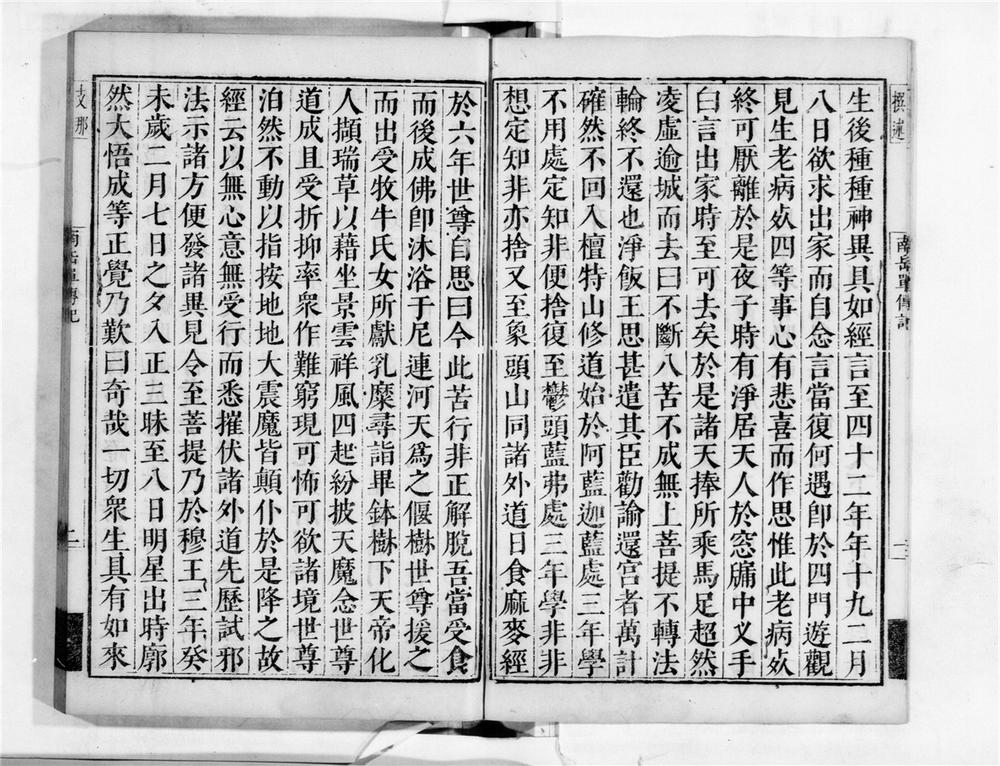 撰述
南岳單傳記
二
生後種種神異具如經言至四十二年年十九二月
八日欲求出家而自念言當復何遇卽於四門遊觀
見生老病死四等事心有悲喜而作思惟此老病死
終可厭離於是夜子時有淨居天人於窓牖中义手
白言出家時至可去矣於是諸天捧所乘馬足超然
凌虛逾城而去曰不斷八苦不成無上菩提不轉法
輪終不還也淨飯王思甚遣其臣勸諭還宮者萬計
確然不回入檀特山修道始於阿藍迦藍處三年學
不用處定知非便捨復至鬱頭藍弗處三年學非非
想定知非亦捨又至象頭山同諸外道日食麻麥經
於六年世尊自思曰今此苦行非正解脫吾當受食
而後成佛卽沐浴于尼連河天爲之偃樹世尊援之
而出受牧牛氏女所獻乳糜尋詣畢鉢樹下天帝化
人擷瑞草以藉坐景雲祥風四起紛披天魔念世尊
道成且受折抑率衆作難窮現可怖可欲諸境世尊
泊然不動以指按地地大震魔皆顛仆於是降之故
經云以無心意無受行而悉摧伏諸外道先歷試邪
法示諸方便發諸異見令至菩提乃於穆王三年癸
未歲二月七日之夕入正三昧至八日明星出時廓
然大悟成等正覺乃歎曰奇哉一切衆生具有如來
支那
南岳單傳記
二